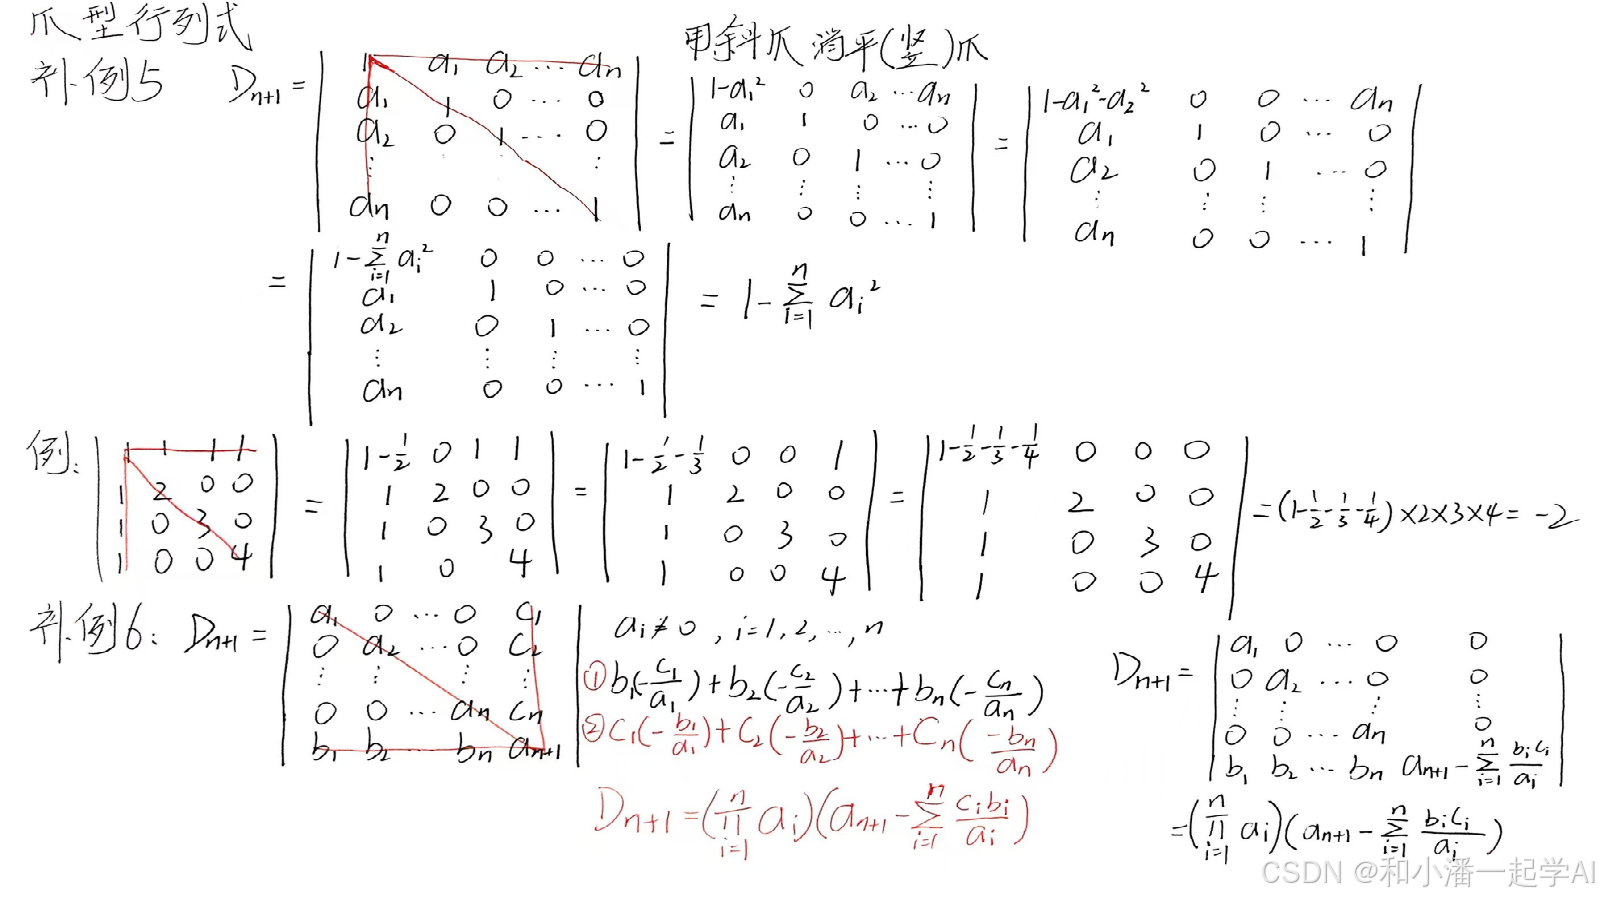 爪型行列式
用斜爪消平(竖)爪
补例5 D_{n+1} = | 1 a₁ a₂ … aₙ ; a₁ 1 0 … 0 ; a₂ 0 1 … 0 ; ⋮ ⋮ ; aₙ 0 0 … 1 | = | 1-a₁² 0 a₂ … aₙ ; a₁ 1 0 … 0 ; a₂ 0 1 … 0 ; ⋮ ⋮ ⋮ ⋮ ; aₙ 0 0 … 1 | = | 1-a₁²-a₂² 0 0 … aₙ ; a₁ 1 0 … 0 ; a₂ 0 1 … 0 ; ⋮ ⋮ ⋮ ⋮ ; aₙ 0 0 … 1 |
= | 1-∑_{i=1}^{n} aᵢ² 0 0 … 0 ; a₁ 1 0 … 0 ; a₂ 0 1 … 0 ; ⋮ ⋮ ⋮ ⋮ ; aₙ 0 0 … 1 | = 1-∑_{i=1}^{n} aᵢ²
例: | 1 1 1 1 ; 1 2 0 0 ; 1 0 3 0 ; 1 0 0 4 | = | 1-1/2 0 1 1 ; 1 2 0 0 ; 1 0 3 0 ; 1 0 4 | = | 1-1/2-1/3 0 0 1 ; 1 2 0 0 ; 1 0 3 0 ; 1 0 0 4 | = | 1-1/2-1/3-1/4 0 0 0 ; 1 2 0 0 ; 1 0 3 0 ; 1 0 0 4 | = (1-1/2-1/3-1/4)×2×3×4 = -2
补例6: D_{n+1} = | a₁ 0 … 0 c₁ ; 0 a₂ … 0 c₂ ; ⋮ ⋮ ⋮ ⋮ ; 0 0 … aₙ cₙ ; b₁ b₂ bₙ a_{n+1} | aᵢ≠0, i=1,2,…,n
①b₁(-c₁/a₁)+b₂(-c₂/a₂)+…+bₙ(-cₙ/aₙ)
②c₁(-b₁/a₁)+c₂(-b₂/a₂)+…+cₙ(-bₙ/aₙ)
D_{n+1}=(∏_{i=1}^{n} aᵢ)(a_{n+1}-∑_{i=1}^{n} cᵢbᵢ/aᵢ)
D_{n+1} = | a₁ 0 … 0 0 ; 0 a₂ … 0 0 ; ⋮ ⋮ ⋮ ⋮ ; 0 0 … aₙ 0 ; b₁ b₂ … bₙ a_{n+1}-∑_{i=1}^{n} bᵢcᵢ/aᵢ |
=(∏_{i=1}^{n} aᵢ)(a_{n+1}-∑_{i=1}^{n} bᵢcᵢ/aᵢ)
CSDN @和小潘一起学AI